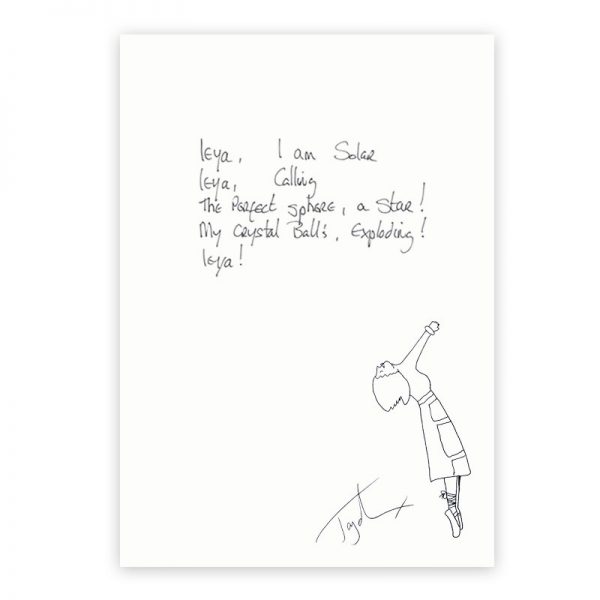 Ieya, I am Solar
Ieya, Calling
The Perfect sphere, a Star!
My Crystal Ball's, Exploding!
Ieya!